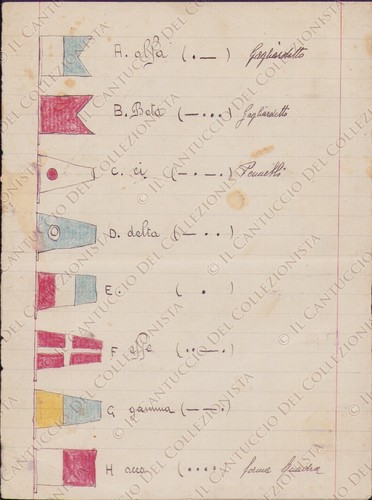 A. alfa (. —) Gagliardetto
B. Beta (— . . .) Gagliardetto
C. ci (— . — .) Pennelli
D. delta (— . .)
E. (.)
F effe (. . — .)
G gamma (— — .)
H acca (. . . .) forma Quadra
© IL CANTUCCIO DEL COLLEZIONISTA